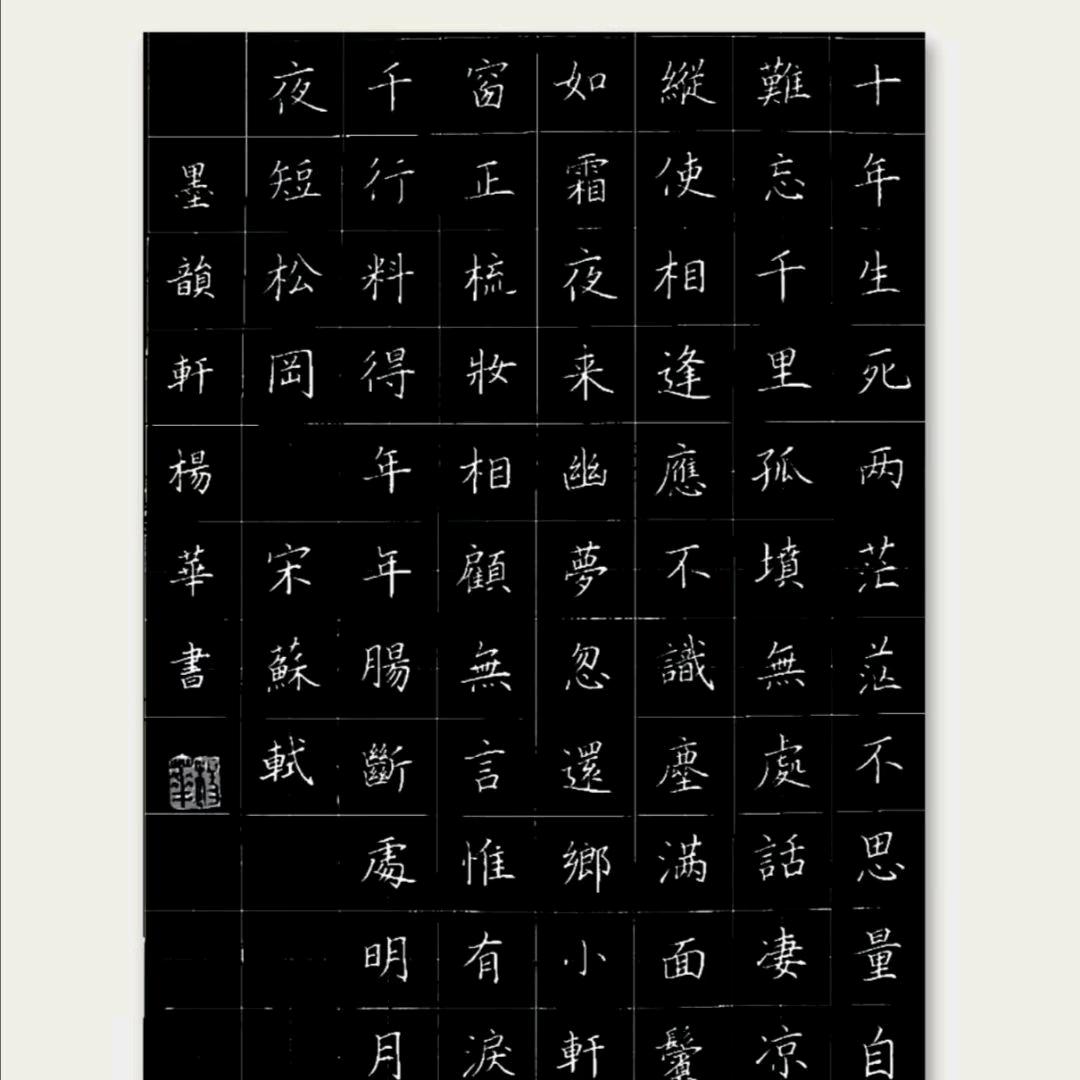 十年生死两茫茫不思量自
難忘千里孤墳無處話凄凉
縱使相逢應不識塵满面鬢
如霜夜来幽夢忽還鄉小軒
窗正梳妝相顧無言惟有淚
千行料得年年腸斷處明月
夜短松岡 宋蘇軾
墨韻軒楊華書